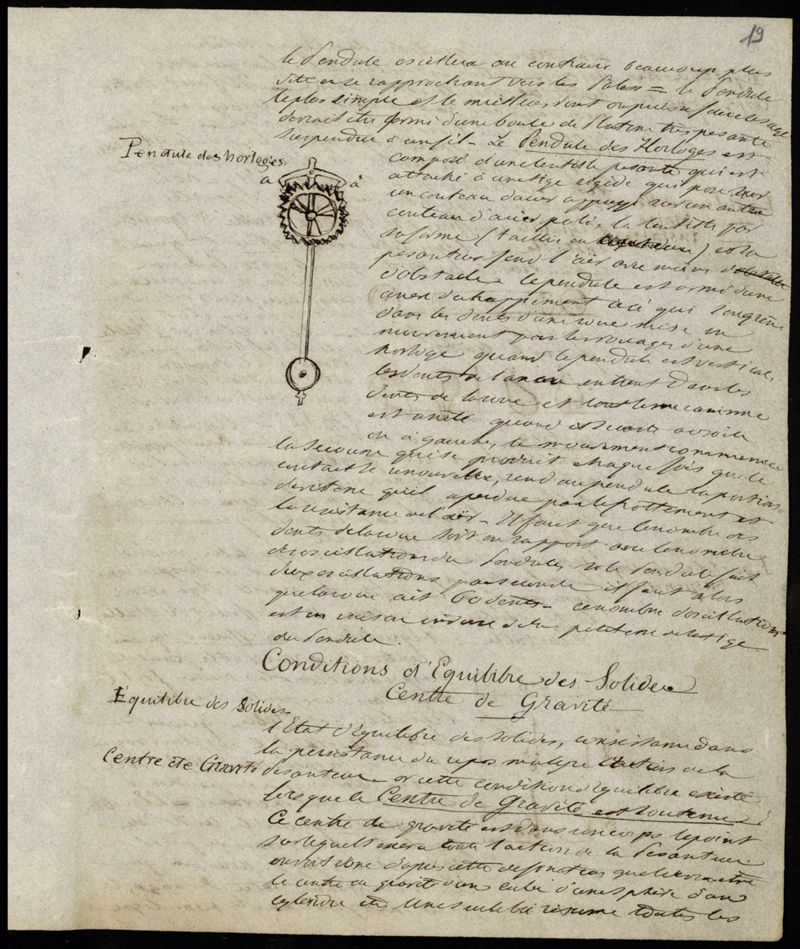 19
le Pendule oscillera au contraire beaucoup plus
vite en se rapprochant vers les Poles = le Pendule
le plus simple et le meilleur dont on puisse faire usage
devrait être formé d'une boule de Platine très pesante
suspendue à un fil - Le Pendule des Horloges est
Pendule des horloges.
composé d'une lentille pesante qui est
attaché à une tige rigide qui pose sur
un couteau d'acier appuyé sur un autre
couteau d'acier poli, la lentille par
sa forme (taillée en ) et sa
pesanteur fend l'air avec moins
d'obstacle - le pendule est armé d'une
a a
ancre d'échappement àà qui s'engrène
dans les dents d'une roue mise en
mouvement par les rouages d'une
horloge quand le pendule est vertical,
les dents de l'ancre entrent dans les
dents de la roue et tout le mécanisme
est arrêté quand il s'écarte à droite
ou à gauche, le mouvement commence
la secousse qui se produit chaque fois que le
contact se renouvelle, rend au pendule la portion
de vitesse qu'il a perdue par le frottement et
la résistance de l'air - Il faut que le nombre des
dents de la roue soit en rapport avec le nombre
des oscillations du Pendule, si le Pendule fait
deux oscillations par seconde il faut alors
que la roue ait 60 dents - ce nombre d'oscillations
est en raison inverse de la petitesse de la tige
du Pendule.
Conditions d'Equilibre des Solides
Centre de Gravité
Équilibre des Solides.
l'Etat d'Equilibre des Solides, consiste dans
la persistance du repos malgré l'action de la
Centre de Gravité
Pesanteur or cette condition d'équilibre existe
lorsque le Centre de Gravité est soutenu.
Ce centre de gravité est dans un corps le point
sur lequel s'exerce toute l'action de la Pesanteur
on voit donc d'après cette définition que
le centre de gravité d'un cube d'une sphère d'un
cylindre etc résume toutes les